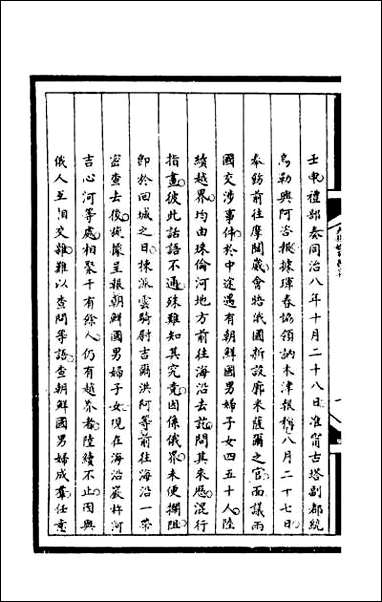 壬申禮部奏同治八年十月二十八日准甯古塔副都統
烏勒興阿咨撫據琿春協領訥木津報稱八月二十七日
奉飭前往摩闊崴會晤俄國新設廓米薩爾之官面議兩
國交涉事件於中途遇有朝鮮國男婦子女四五十人陸
續越界均由珠倫河地方前往海沿去訖問其來歷混行
指畫彼此話語不通殊難知其究竟因係俄界未便攔阻
即於回城之日揀派雲騎尉吉爾洪阿等前往海沿一帶
密查去後旋據呈報朝鮮國男婦子女現在海沿巖杵河
吉心河等處相聚千有餘人仍有越界者陸續不止因與
俄人互相交雜難以查問等語查朝鮮國男婦成羣任意